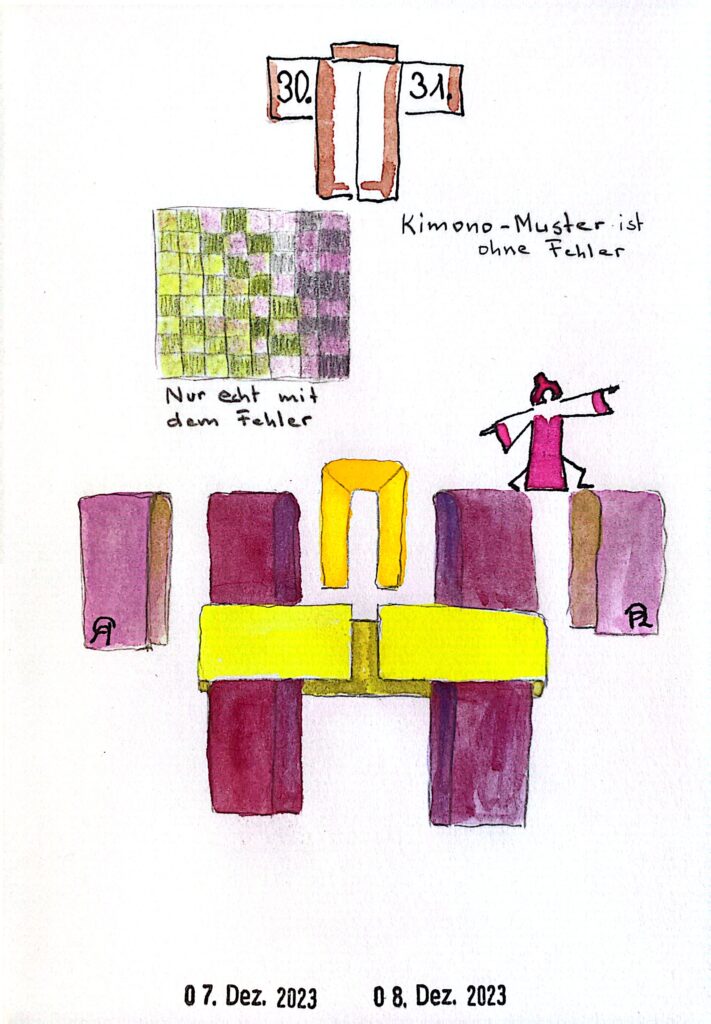 30. 31.
Kimono-Muster ist
ohne Fehler
Nur echt mit
dem Fehler
07. Dez. 2023 08. Dez. 2023